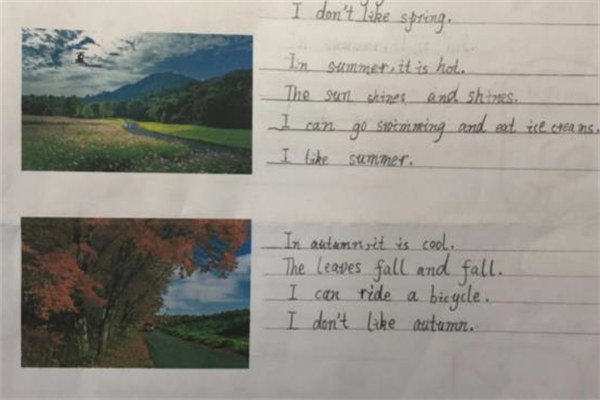 I don't like spring.
In summer, it is hot.
The sun shines and shines.
I can go swimming and eat ice creams.
I like summer.
In autumn, it is cool.
The leaves fall and fall.
I can ride a bicycle.
I don't like autumn.